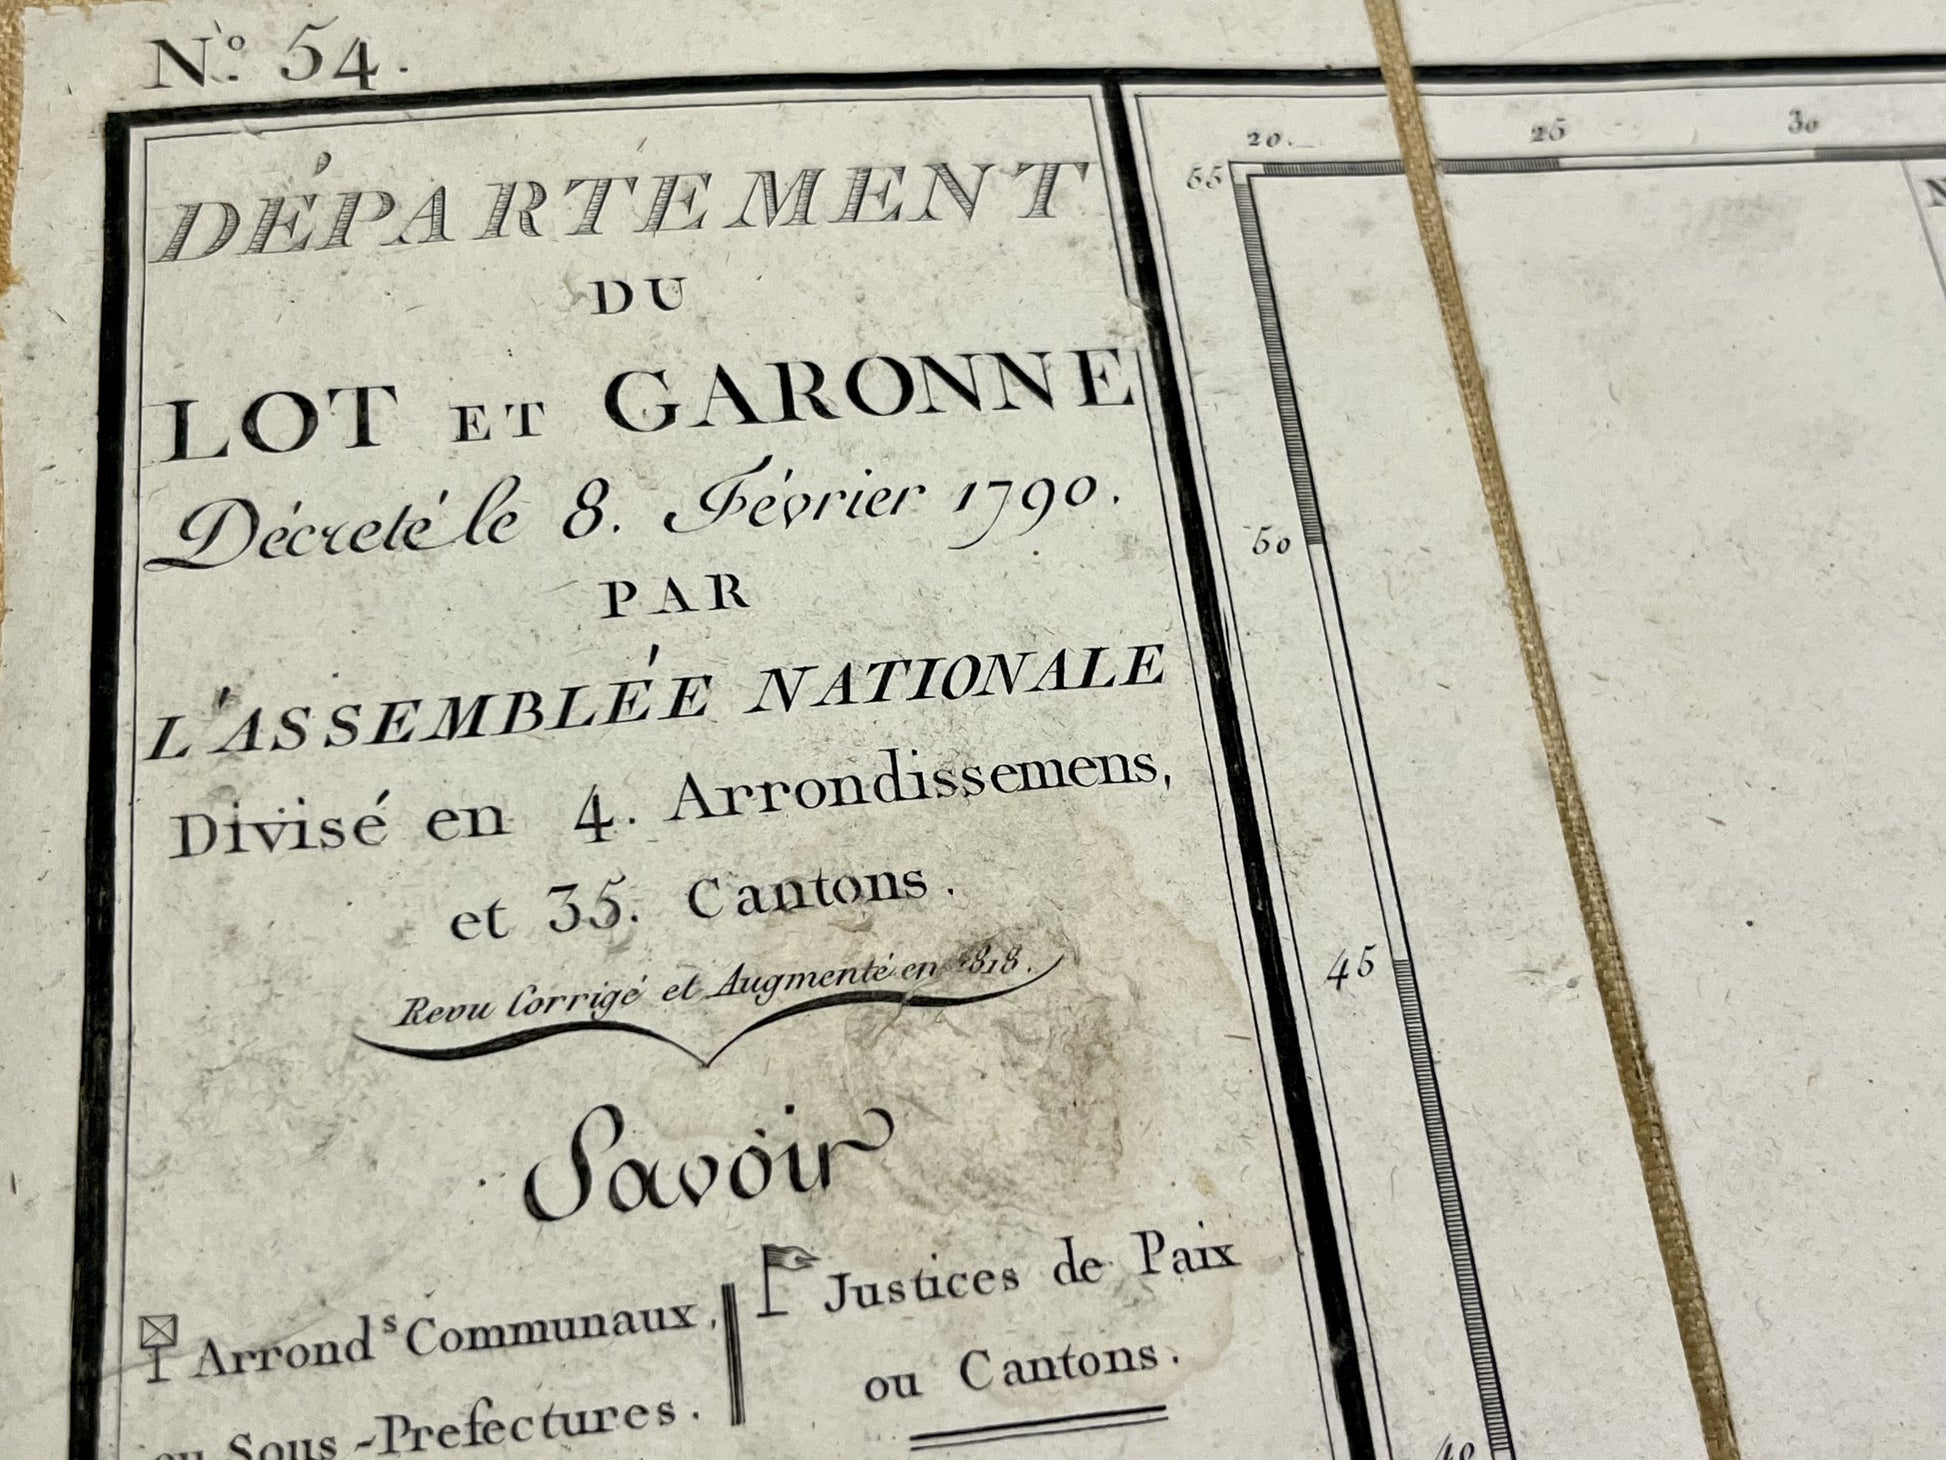 N.º 54.
DÉPARTEMENT
DU
LOT ET GARONNE
Décreté le 8. Février 1790.
PAR
L'ASSEMBLÉE NATIONALE
Divisé en 4. Arrondissemens,
et 35. Cantons.
Revu Corrigé et Augmenté en 1818.
Savoir
Arrond.s Communaux.
ou Sous-Prefectures.
Justices de Paix
ou Cantons.
20. 25 30
55
50
45
40
N